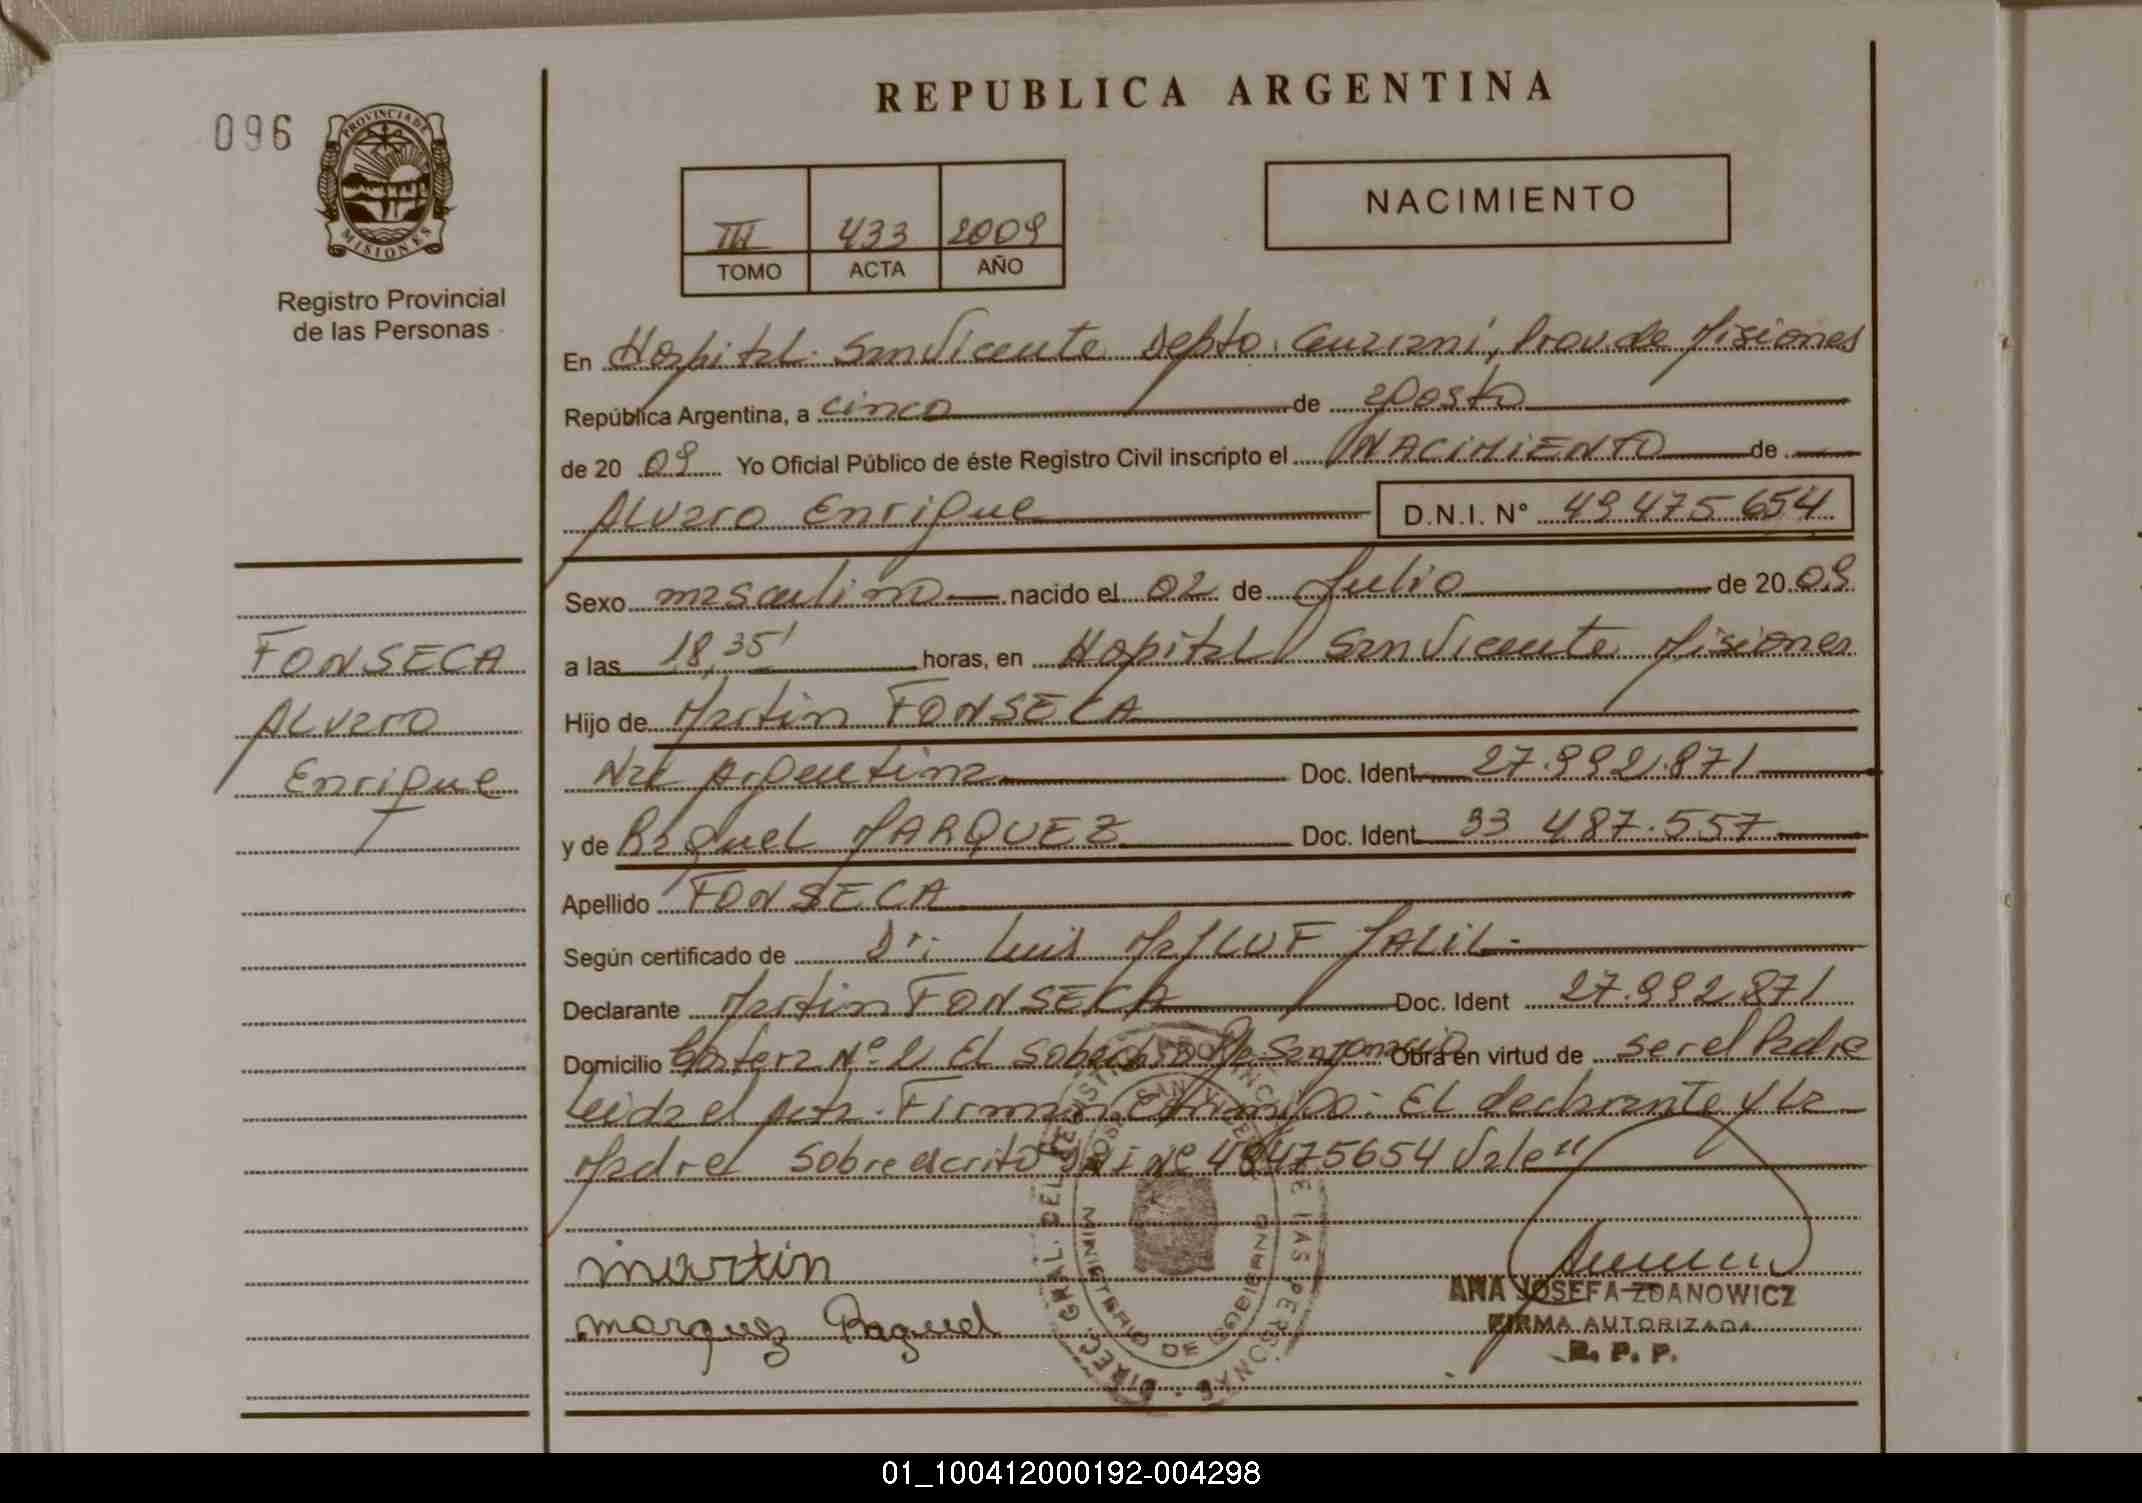 096
PROVINCIA DE
MISIONES
Registro Provincial
de las Personas
REPUBLICA ARGENTINA
III 433 2009
TOMO ACTA AÑO
NACIMIENTO
En Hospital San Vicente Depto. Guarani, Prov. de Misiones
República Argentina, a cinco de agosto
de 20 09 Yo Oficial Público de éste Registro Civil inscripto el NACIMIENTO de
Alvaro Enrique D.N.I. N° 49 475 654
Sexo masculino nacido el 02 de Julio de 20 09
a las 18,35' horas, en Hospital San Vicente Misiones
Hijo de Martin FONSECA
Nac Argentina Doc. Ident 27.992.871
y de Raquel MARQUEZ Doc. Ident 33 487.557
Apellido FONSECA
Según certificado de Dr: Luis MALLUF JALIL
Declarante Martin FONSECA Doc. Ident 27.992 871
Domicilio N° 2 El Obra en virtud de ser el Padre
Leida el Acta. Firman conmigo: El declarante y la
Madre Sobreescrito DNI N° 49475654 Vale"
FONSECA
Alvaro
Enrique
martin
marquez Raquel
DIREC. GRAL. DEL REGISTRO PROVINCIAL DE LAS PERSONAS
MINISTERIO DE GOBIERNO
ANA JOSEFA ZDANOWICZ
FIRMA AUTORIZADA
R. P. P.
01_100412000192-004298